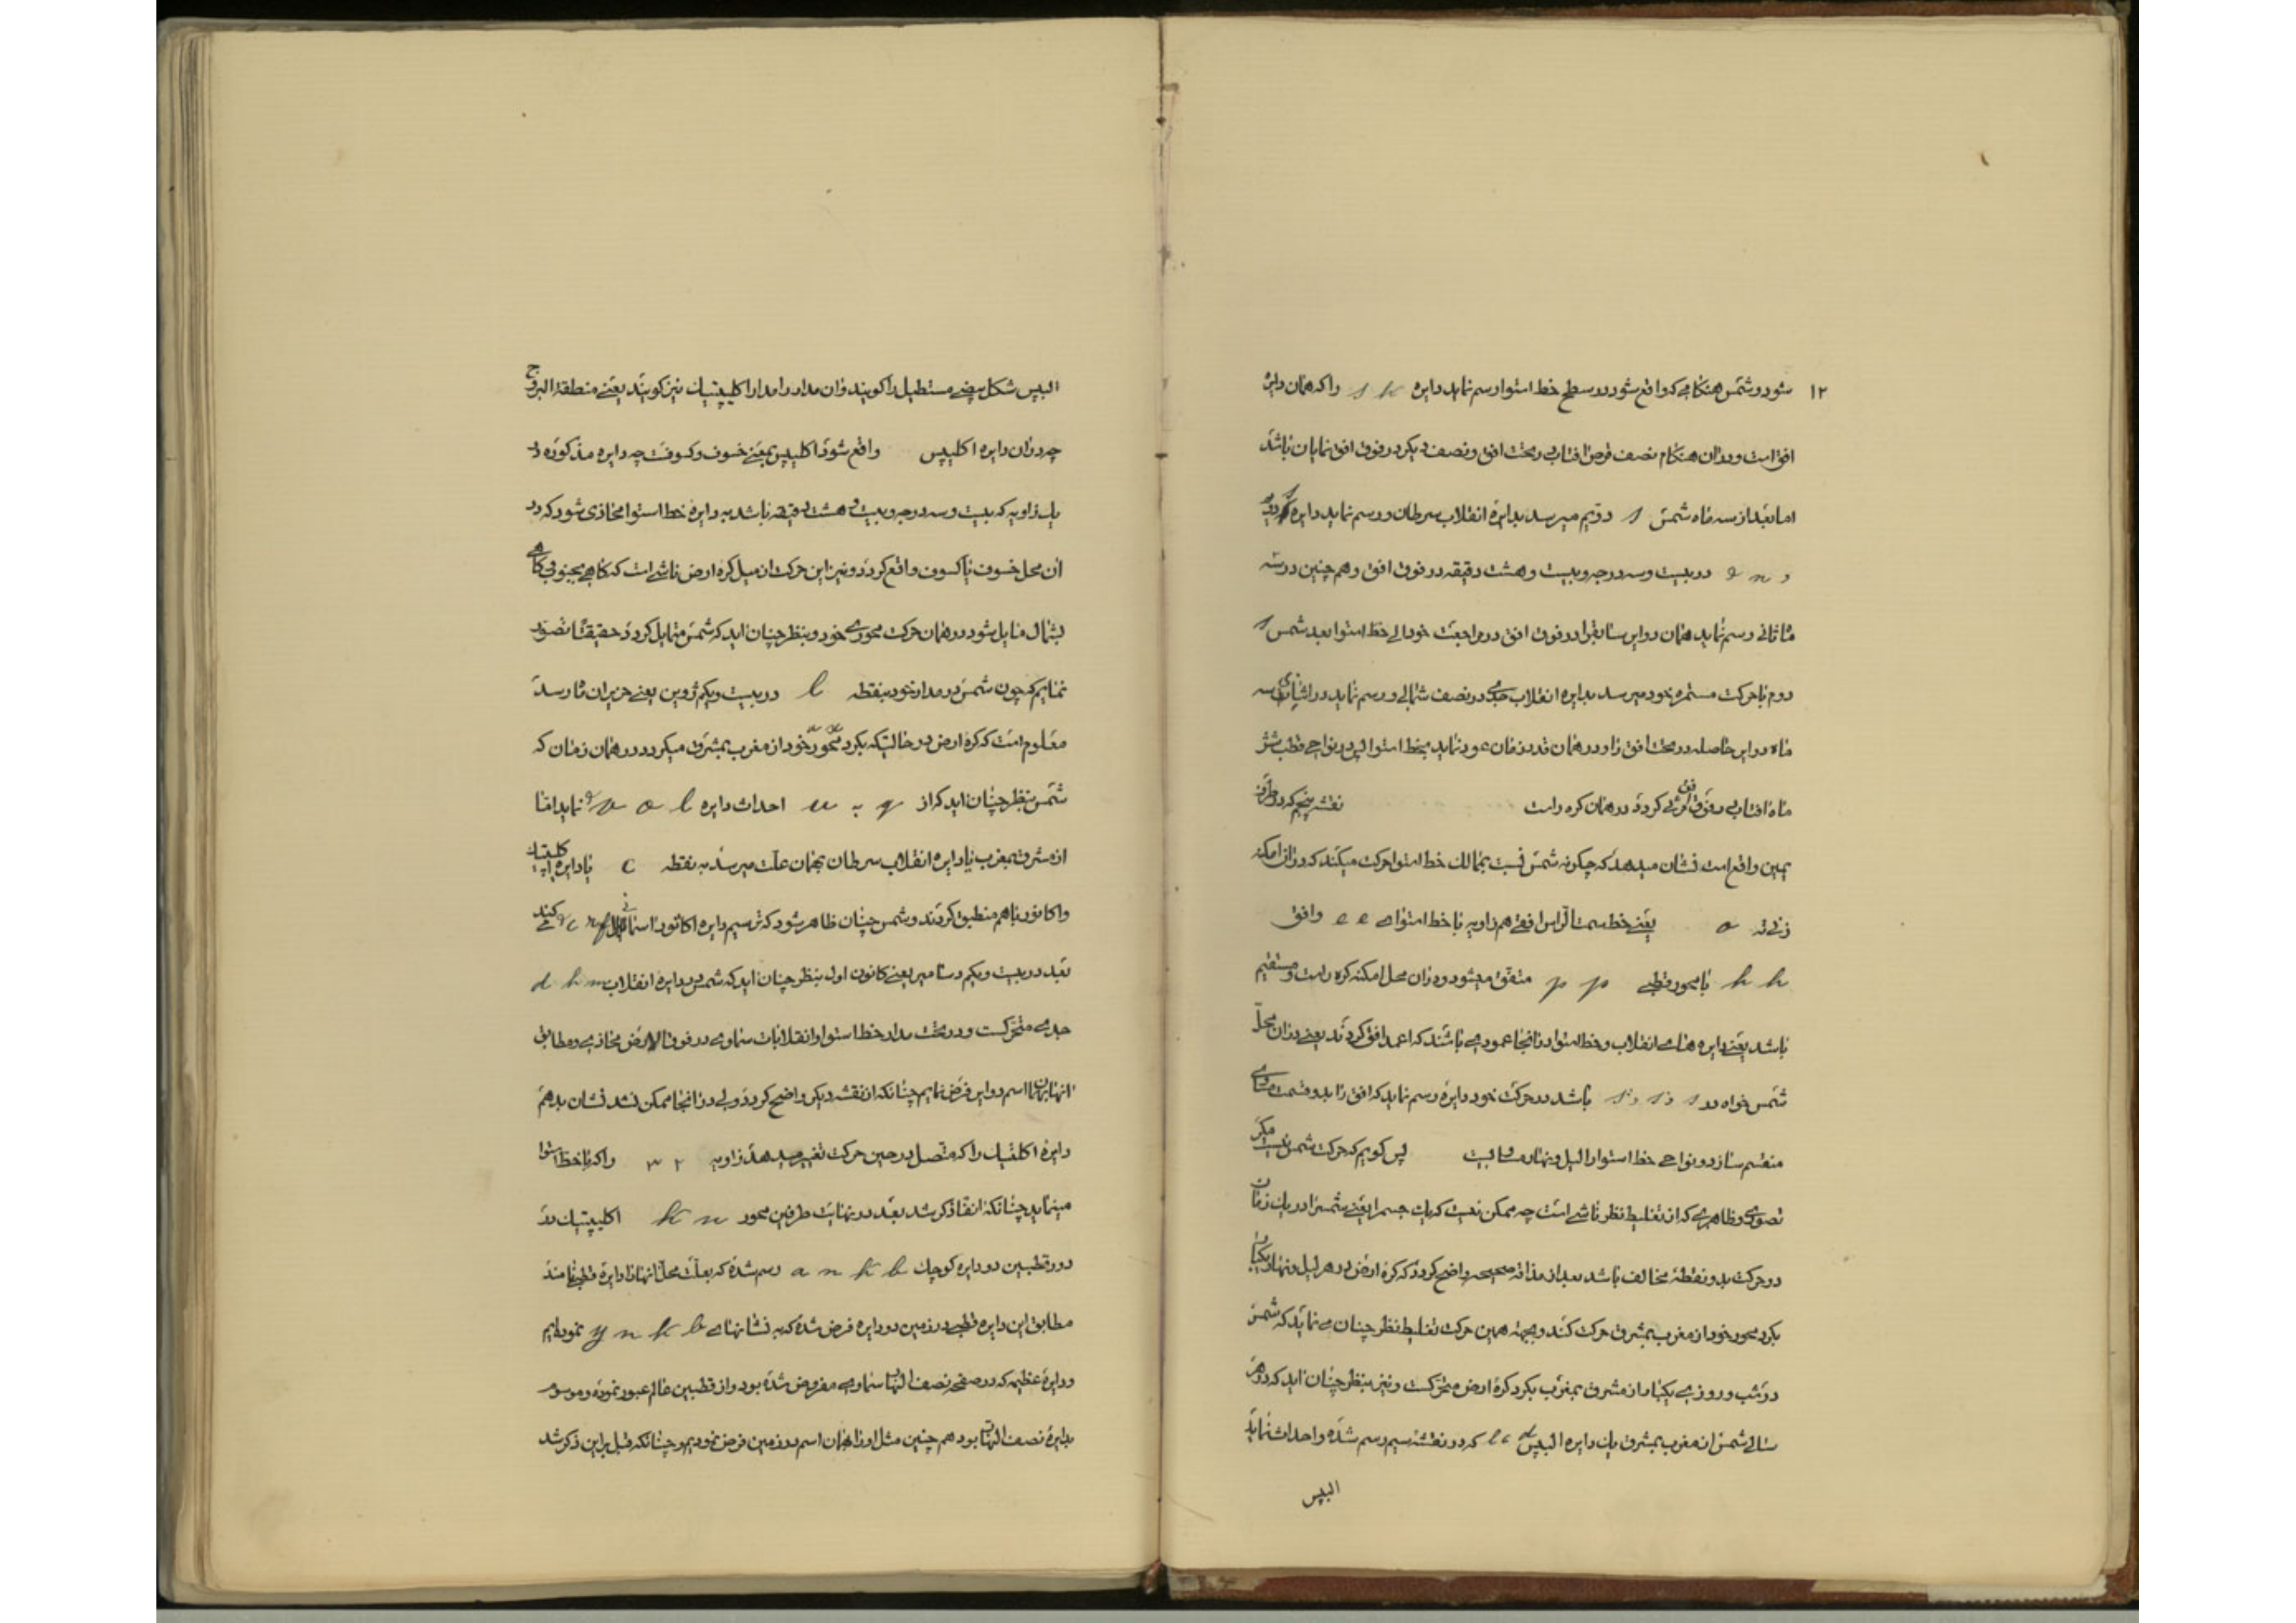 ۱۲ شود و شمس هنگامی که واقع شود در سطح خط استوا رسم نماید دایره s h را که همان دایره
افق است و در آن هنگام نصف قرص آفتاب در تحت افق و نصف دیگر در فوق افق نمایان باشد
اما بعد از سه ماه شمس s دویم میرسد بدایره انقلاب سرطان و رسم نماید دایره
و n e در بیست و سه درجه و بیست و هشت دقیقه در فوق افق و هم چنین در سه
ماه ثانی رسم نماید همان دوایر سابق را در فوق افق در مراجعت خود الی خط استوا بعد شمس s
دوم با حرکت مستمره خود میرسد بدایره انقلاب جدی در نصف شمالی و رسم نماید در اثنای سه
ماه دوایر حاصله در تحت افق را و در همان قدر زمان عود نماید بخط استوا پس در نواحی قطب شش
ماه آفتاب در فوق افق مرئی گردد در همان کره راست نقشه پنجم که در طرف
یمین واقع است نشان میدهد که چگونه شمس نسبت بممالک خط استوا حرکت میکند که در آن امکنه
o یعنی خط سمت الرأس افقی هم زاویه با خط استوای e e و افق
h h با محور قطبی p p متفق میشود و در آن محل امکنه کره راست و مستقیم
باشد یعنی دایره های انقلاب و خط استوا در آنجا عمودی باشند که اعمد افق گردند یعنی در آن محل
شمس خواه در s و s و s باشد در حرکت خود دایره رسم نماید که افق را بدو قسمت مساوی
منقسم سازد و نواحی خط استوا را لیل و نهار مساویست پس گوییم که حرکت شمس نیست مگر
تصوری و ظاهری که از تغلیط نظر ناشی است چه ممکن نیست که یک جسم را یعنی شمس را در یک زمان
دو حرکت بدو نقطه مخالف باشد بعد از مذاقه صحیحه واضح گردد که کره ارض در هر لیل و نهار یکبار
بگرد محور خود از مغرب بمشرق حرکت کند و بجهته همین حرکت تغلیط نظر چنان می نماید که شمس
در شب و روزی یکبار از مشرق بمغرب بگرد کره ارض متحرکست و نیز بنظر چنان آید که در هر
سالی شمس از مغرب بمشرق یک دایره الیپس l c d که در نقشه سیم رسم شده و احداث نماید
الیپس
الیپس شکل بیضی مستطیل را گویند و آن مدار را مدار اکلیپتیک نیز گویند یعنی منطقة البروج
چه در آن دایره اکلیپس واقع شود اکلیپس بمعنی خسوف و کسوفست چه دایره مذکوره در
یک زاویه که بیست و سه درجه و بیست و هشت دقیقه باشد به دایره خط استوا محاذی شود که در
آن محل خسوف یا کسوف واقع گردد و نیز این حرکت از میل کره ارض ناشی است که گاهی بجنوب و گاهی
بشمال مایل شود در همان حرکت محوری خود و بنظر چنان آید که شمس متمایل گردد حقیقتا تصور
نماییم که چون شمس در مدار خود بنقطه l در بیست و یکم ژوین یعنی حزیران ماه رسد
معلوم است که کره ارض در حالتیکه بگرد محور خود از مغرب بمشرق میگردد در همان زمان که
شمس بنظر چنان آید که از q به æ احداث دایره l o v e نماید اما
از مشرق بمغرب یا دایره انقلاب سرطان بهمان علت میرسد به نقطه c با دایره اکلیپتیک
و اکاتور با هم منطبق گردند و شمس چنان ظاهر شود که ترسیم دایره اکاتور آسمانی q r c e می کند
بعد در بیست و یکم دسامبر یعنی کانون اول بنظر چنان آید که شمس در دایره انقلاب d h m
جدی متحرکست و در تحت مدار خط استوا و انقلابات سماوی در فوق الارض محاذی و مطابق
آنها بهمان اسم دوایر فرض نماییم چنانکه از نقشه دیگر واضح گردد ولی در آنجا ممکن نشد نشان بدهم
دایره اکلتیک را که متصل در حین حرکت تغییر میدهد زاویه ۲ ۳ را که با خط استوا
مینماید چنانکه آنفا ذکر شد بعد در نهایت طرفین محور k n اکلیپتیک در
دور قطبین دو دایره کوچک a n k b رسم شده که بعلت محل آنها را دایره قطبی نامند
مطابق این دایره قطبی در زمین دو دایره فرض شده که به نشانهای y n k b نمودیم
و دایره عظیمه که در صفحه نصف النهار سماوی مفروض شده بود و از قطبین عالم عبور نموده و موسوم
بدایره نصف النهار بود هم چنین مثل او را بهمان اسم در زمین فرض نمودیم و چنانکه قبل بر این ذکر شد